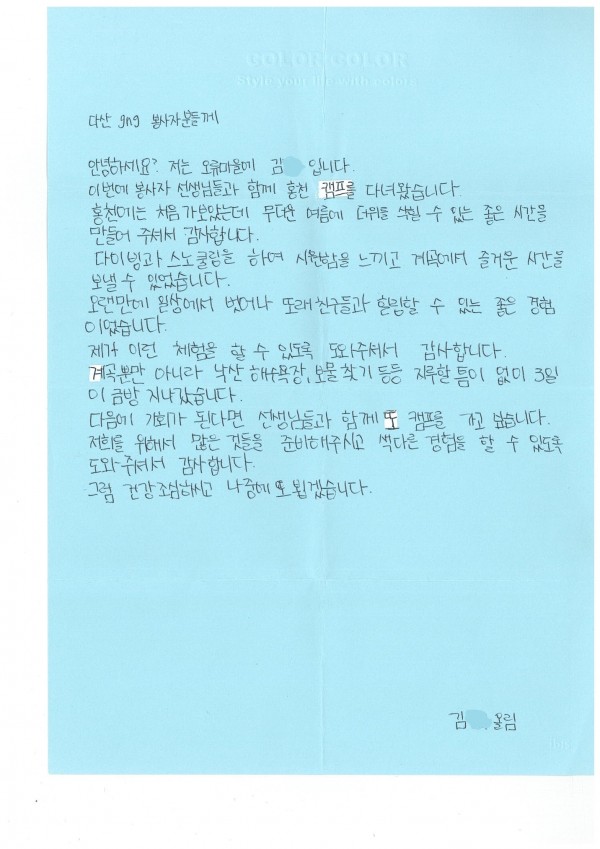 COLOR COLOR
Style your life with color
다산 gng 봉사자분들께
안녕하세요? 저는 오류마을에 김 입니다.
이번에 봉사자 선생님들과 함께 홍천 캠프를 다녀왔습니다.
홍천에는 처음 가보았는데 무더운 여름에 더위를 식힐 수 있는 좋은 시간을
만들어 주셔서 감사합니다.
다이빙과 스노쿨링을 하며 시원함을 느끼고 계곡에서 즐거운 시간을
보낼 수 있었습니다.
오랜만에 일상에서 벗어나 또래친구들과 힐링할 수 있는 좋은 경험
이었습니다.
제가 이런 체험을 할 수 있도록 도와주셔서 감사합니다.
계곡뿐만 아니라 낙산 해수욕장, 보물찾기 등등 지루할 틈이 없이 3일
이 금방 지나갔습니다.
다음에 기회가 된다면 선생님들과 함께 또 캠프를 가고 싶습니다.
저희를 위해서 많은 것들을 준비해주시고 색다른 경험을 할 수 있도록
도와주셔서 감사합니다.
그럼 건강조심하시고 나중에 또 뵙겠습니다.
김 올림